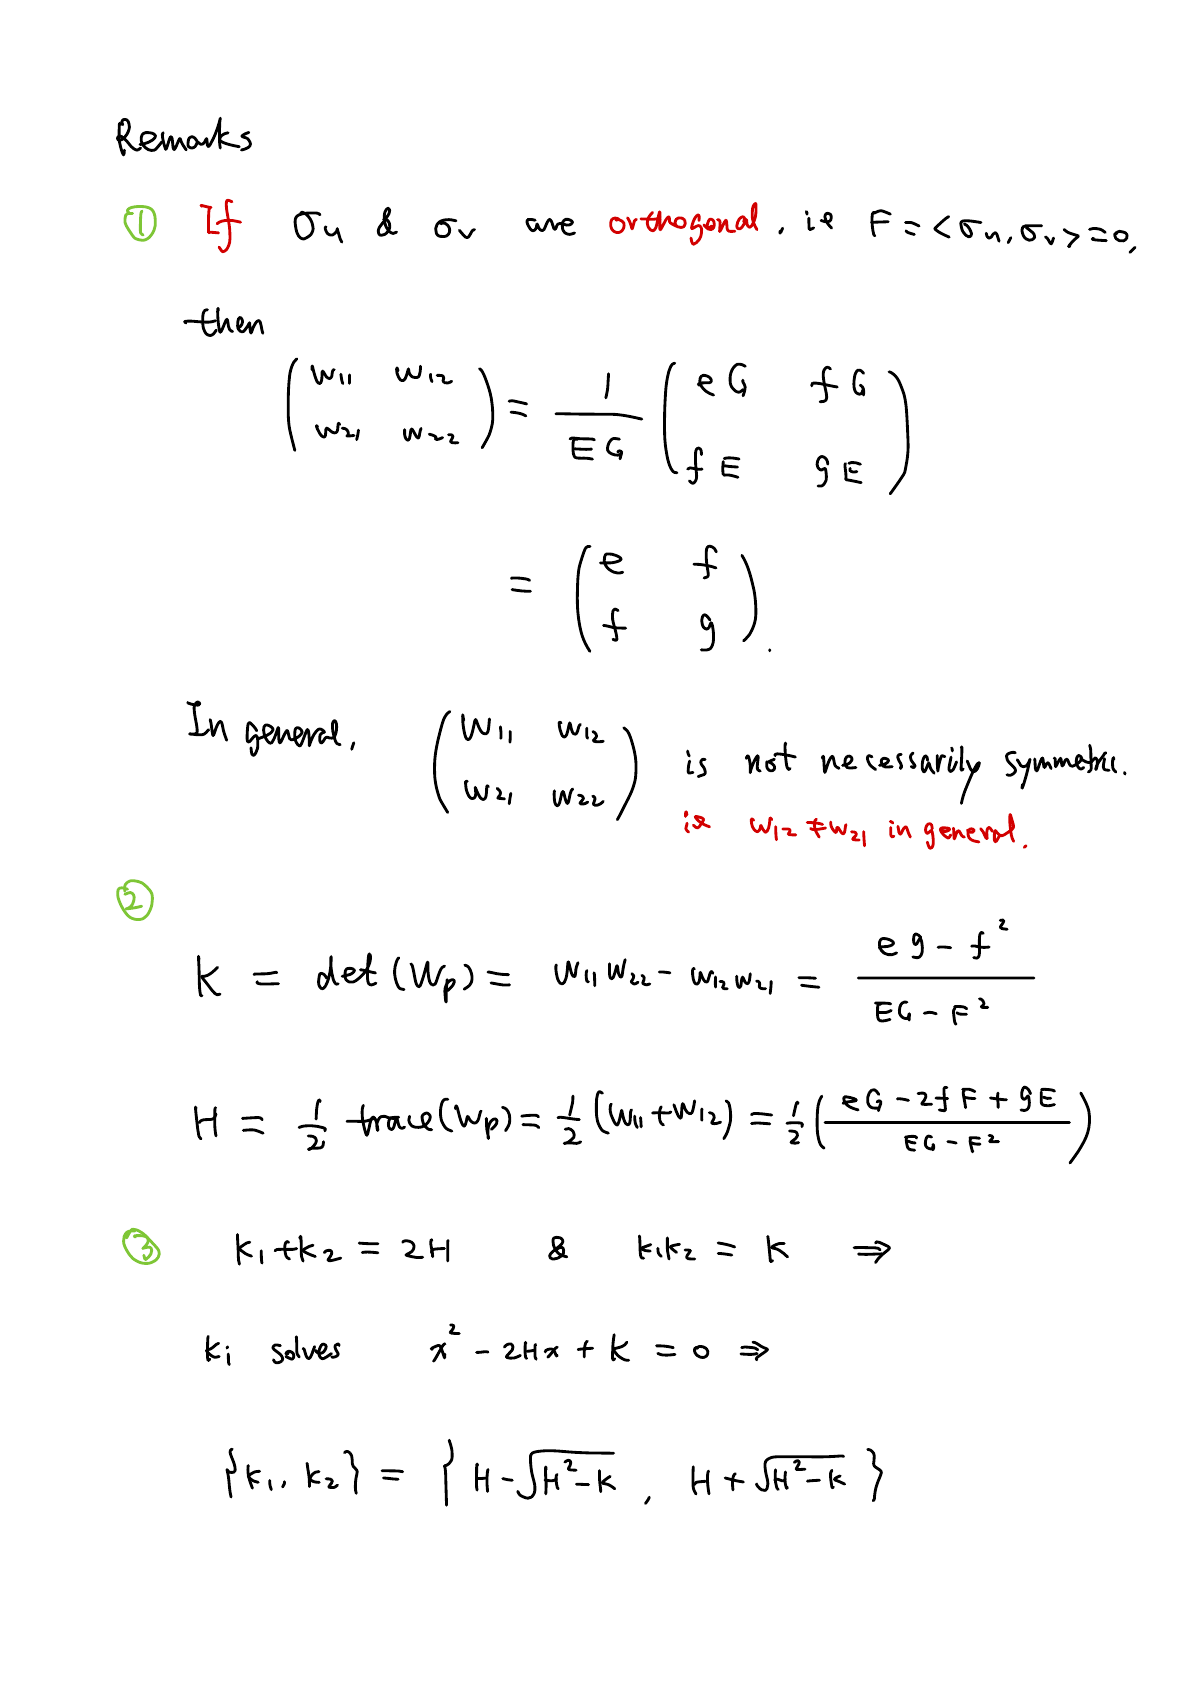 Remarks
① If σu & σv are orthogonal, ie F = <σu, σv> = 0,
then
( w11 w12 ; w21 w22 ) = 1/EG ( eG fG ; fE gE )
= ( e f ; f g ).
In general, ( w11 w12 ; w21 w22 ) is not necessarily symmetric.
ie w12 ≠ w21 in general.
②
K = det(Wp) = w11 w22 - w12 w21 = (eg - f²)/(EG - F²)
H = 1/2 trace(Wp) = 1/2 (w11 + w12) = 1/2 ((eG - 2fF + gE)/(EG - F²))
③ k1 + k2 = 2H & k1k2 = K ⇒
ki solves x² - 2Hx + K = 0 ⇒
{k1, k2} = { H - √(H² - K) , H + √(H² - K) }